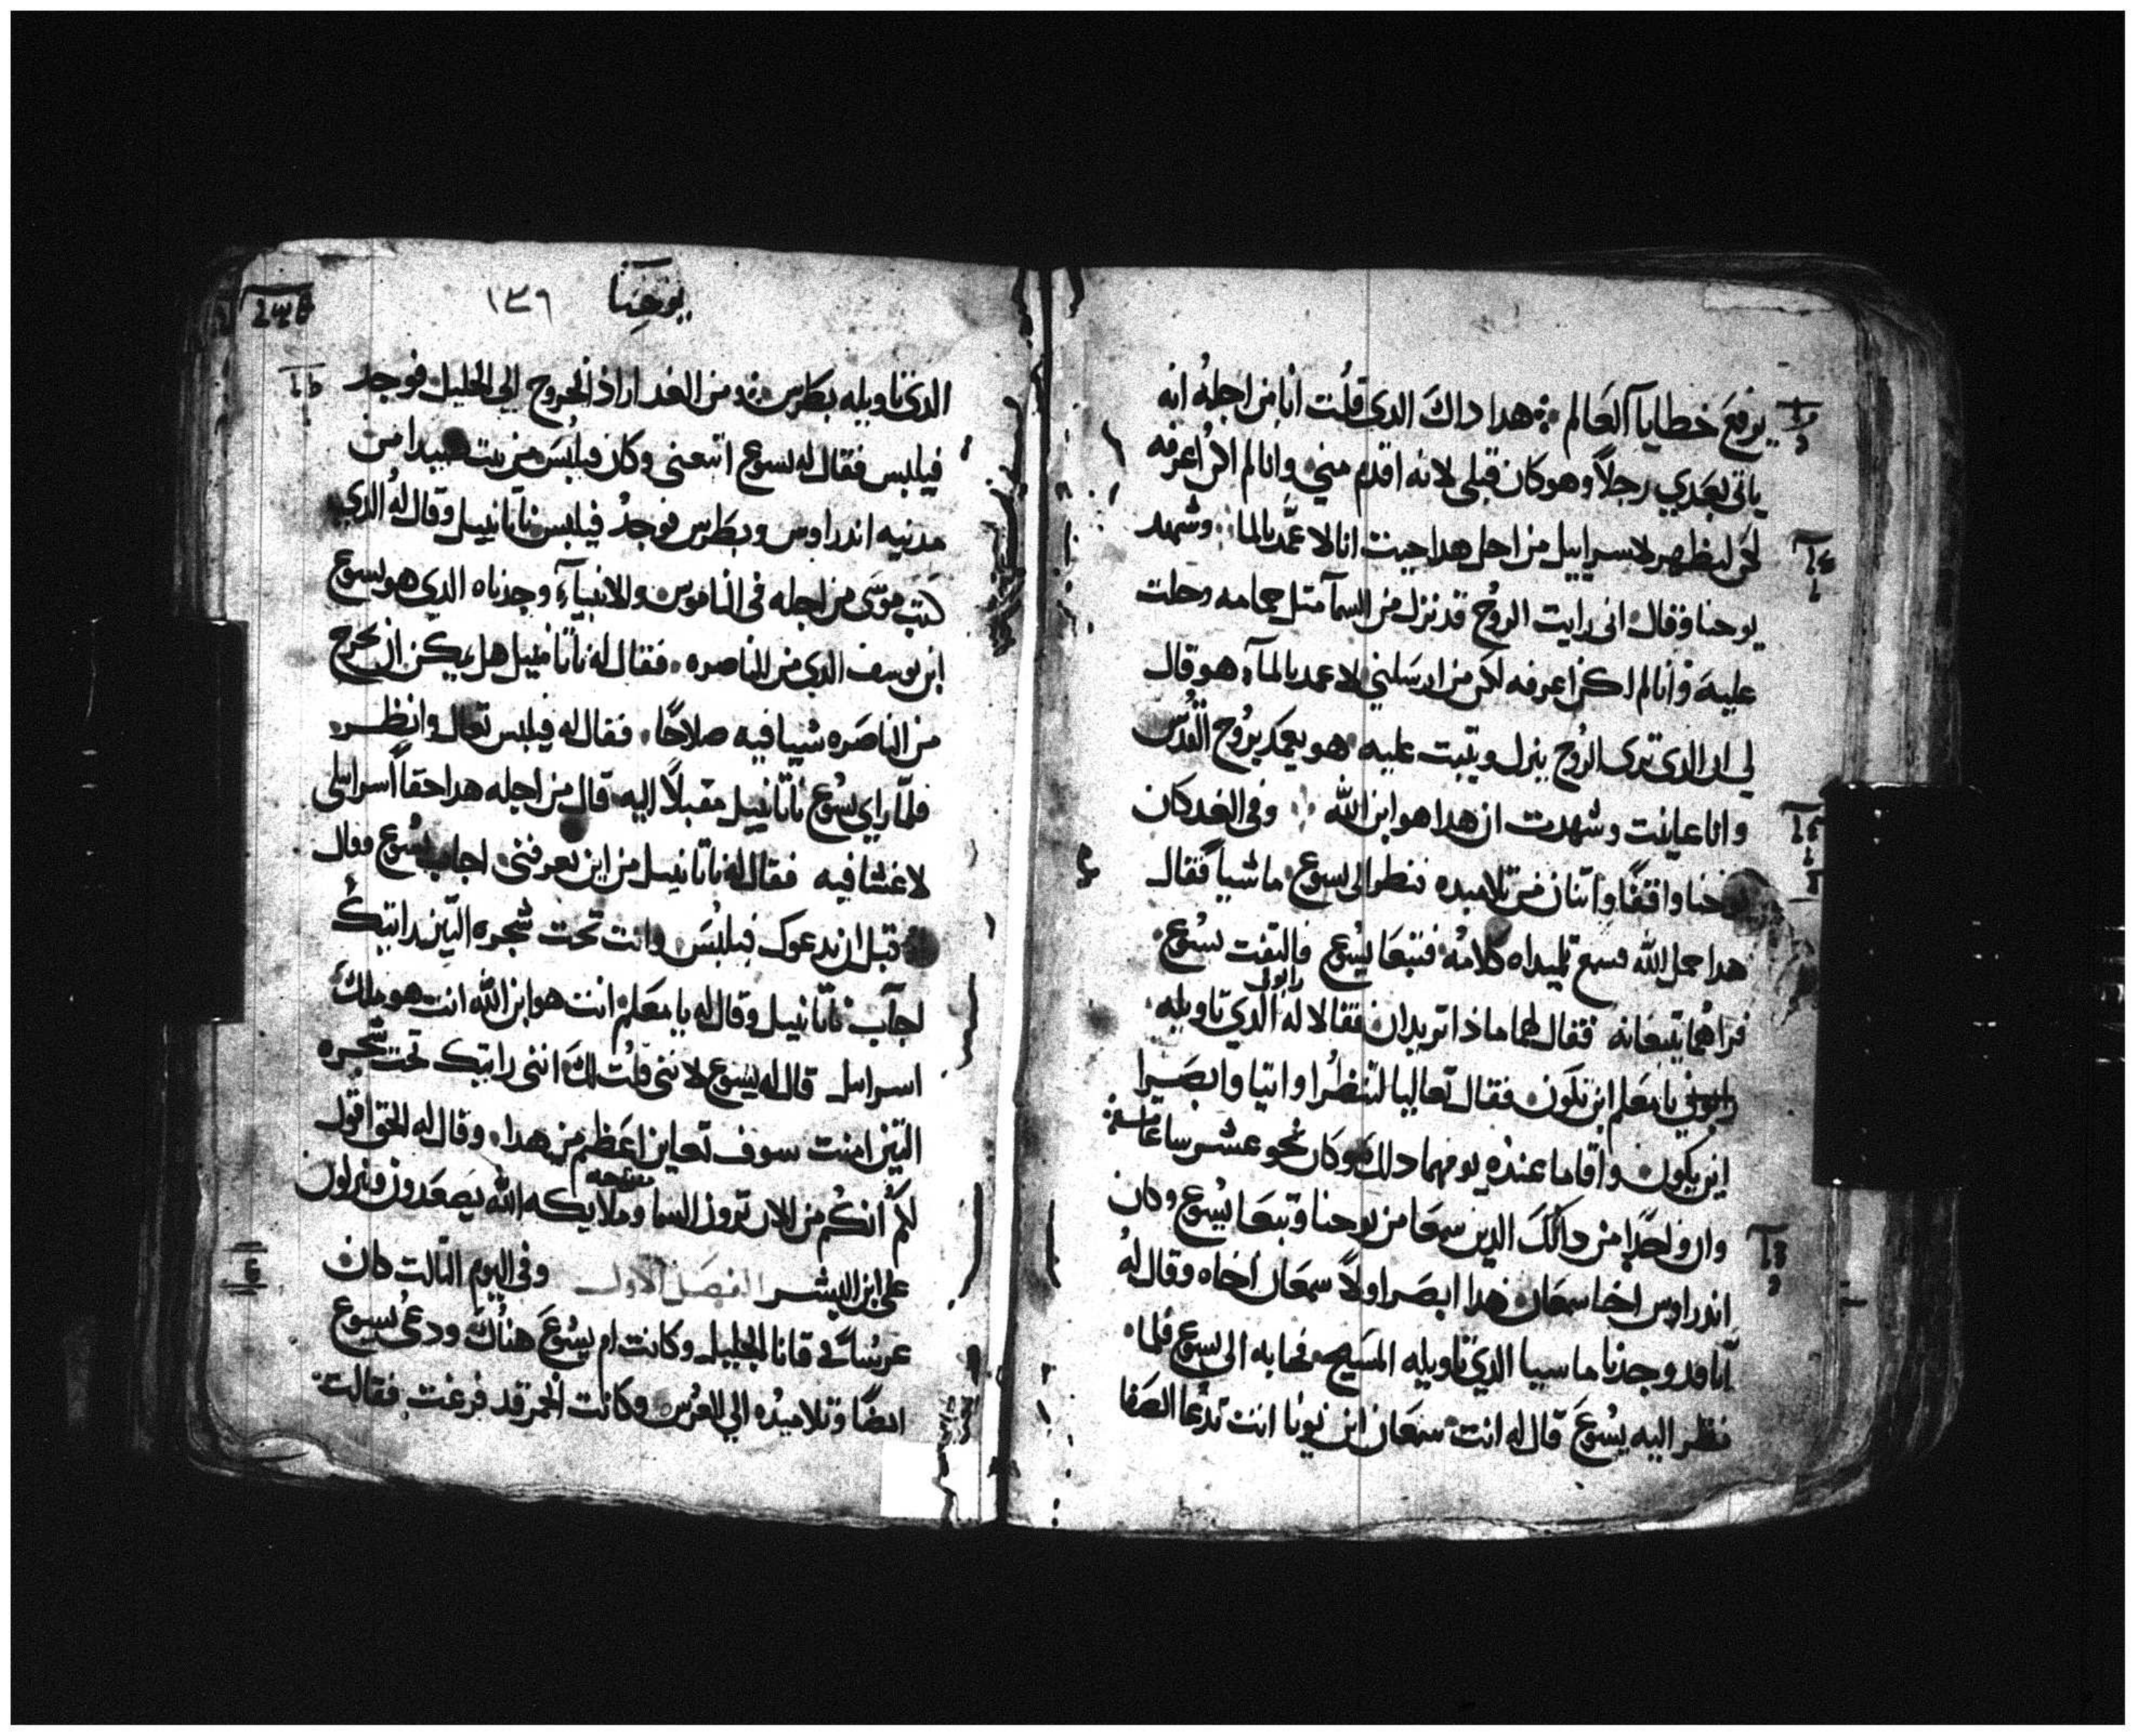 يرفع خطايا العالم ܀ هدا داك الدى قلت انا من اجله انه
ياتى بعدي رجلاً وهو كان قبلى لانه اقدم مني وانا لم اكن اعرفه
لكن ليظهر لاسراييل من اجل هدا جيت انا لاعمد بالما وشهد
يوحنا وقال انى رايت الروح قد نزل من السمآ متل حمامه وحلت
عليه وانا لم اكن اعرفه لكن من ارسلني لاعمد بالمآ هو قال
لي ان الدى ترى الروح ينزل ويتبت عليه هو يعمد بروح القدس
وانا عاينت وشهدت ان هدا هو ابن الله وفى الغد كان
يوحنا واقفًا واتنان من تلاميده فنظر الى يسوع ماشياً فقال
هدا حمل الله فسمع تلميداه كلامه فتبعا يسوع فالتفت يسوع
فراهما يتبعانه فقال لهما ماذا تريدان فقالا له رابونى الدي تاويله
رابوني يا معلم اين تكون فقال تعاليا لتنظرا واتيا وابصرا
اين يكون واقاما عنده يومهما دلك وكان نحو عشر ساعات
وان واحدًا من داك الدين سمعا من يوحنا وتبعا يسوع وكان
اندراوس اخا سمعان هدا ابصر اولاً سمعان اخاه وقال له
آنا قد وجدنا ماسيا الدي تاويله المسيح فجا به الى يسوع فلما
نظر اليه يسوع قال له انت سمعان ابن يونا انت تدعا الصفا
يوحنا
١٣٦
الدى تاويله بطرس ܀ ومن الغد اراد الخروج الى الجليل فوجد
فيلبس فقال له يسوع اتبعنى وكان فيلبس من بيت صيدا من
مدنيه اندراوس وبطرس فوجد فيلبس ناتانييل وقال له الدي
كتب موسى من اجله فى الناموس والانبيآء وجدناه الدي هو يسوع
ابن يوسف الدي من الناصره فقال له ناتانييل هل يمكن ان يخرج
من الناصره شييا فيه صلاحًا فقال له فيلبس تعال وانظر
فلما راي يسوع ناتانييل مقبلاً اليه قال من اجله هدا حقاً اسراييلى
لا غشا فيه فقال له ناتانييل من اين تعرفنى اجاب يسوع وقال
قبل ان يدعوك فيلبس وانت تحت شجره التين رايتك
اجآب ناتانييل وقال له يا معلم انت هو ابن الله انت هو ملك
اسراييل قال له يسوع لاننى قلت لك اننى رايتك تحت شجره
التين امنت سوف تعاين اعظم من هدا وقال له الحق اقول
لكم انكم من الان ترون السما مفتحه وملايكه الله يصعدون وينزلون
على ابن البشر الفصل الاول وفى اليوم التالت كان
عرسًا فى قانا الجليل وكانت ام يسوع هناك ودعى يسوع
ايضًا وتلاميده الي العرس وكانت الخمر قد فرغت فقالت